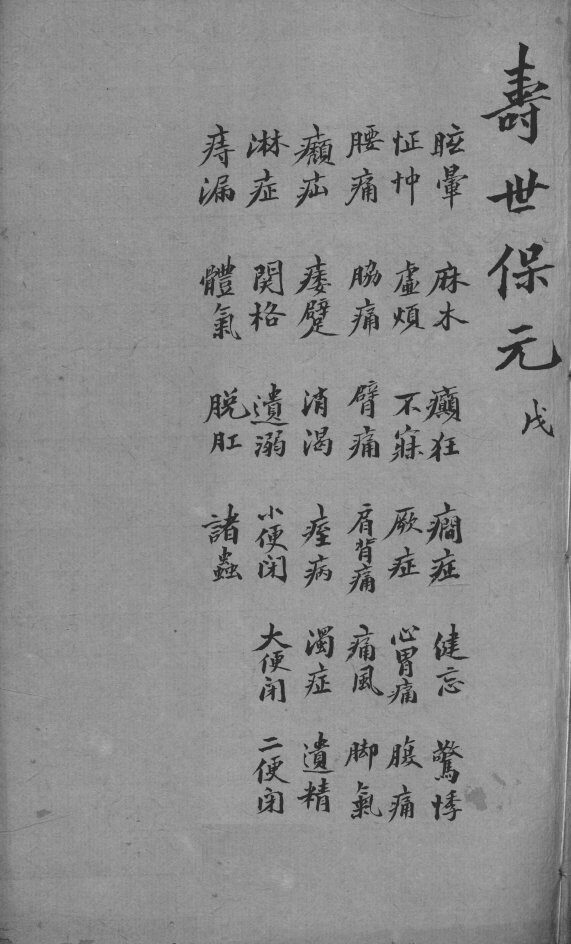 壽世保元 戊
眩暈 麻木 癲狂 癇症 健忘 驚悸
怔忡 虛煩 不寐 厥症 心胃痛 腹痛
腰痛 脇痛 臂痛 肩背痛 痛風 脚氣
㿗疝 痿躄 消渴 痓病 濁症 遺精
淋症 関格 遺溺 小便闭 大便闭 二便闭
痔漏 體氣 脱肛 諸蟲